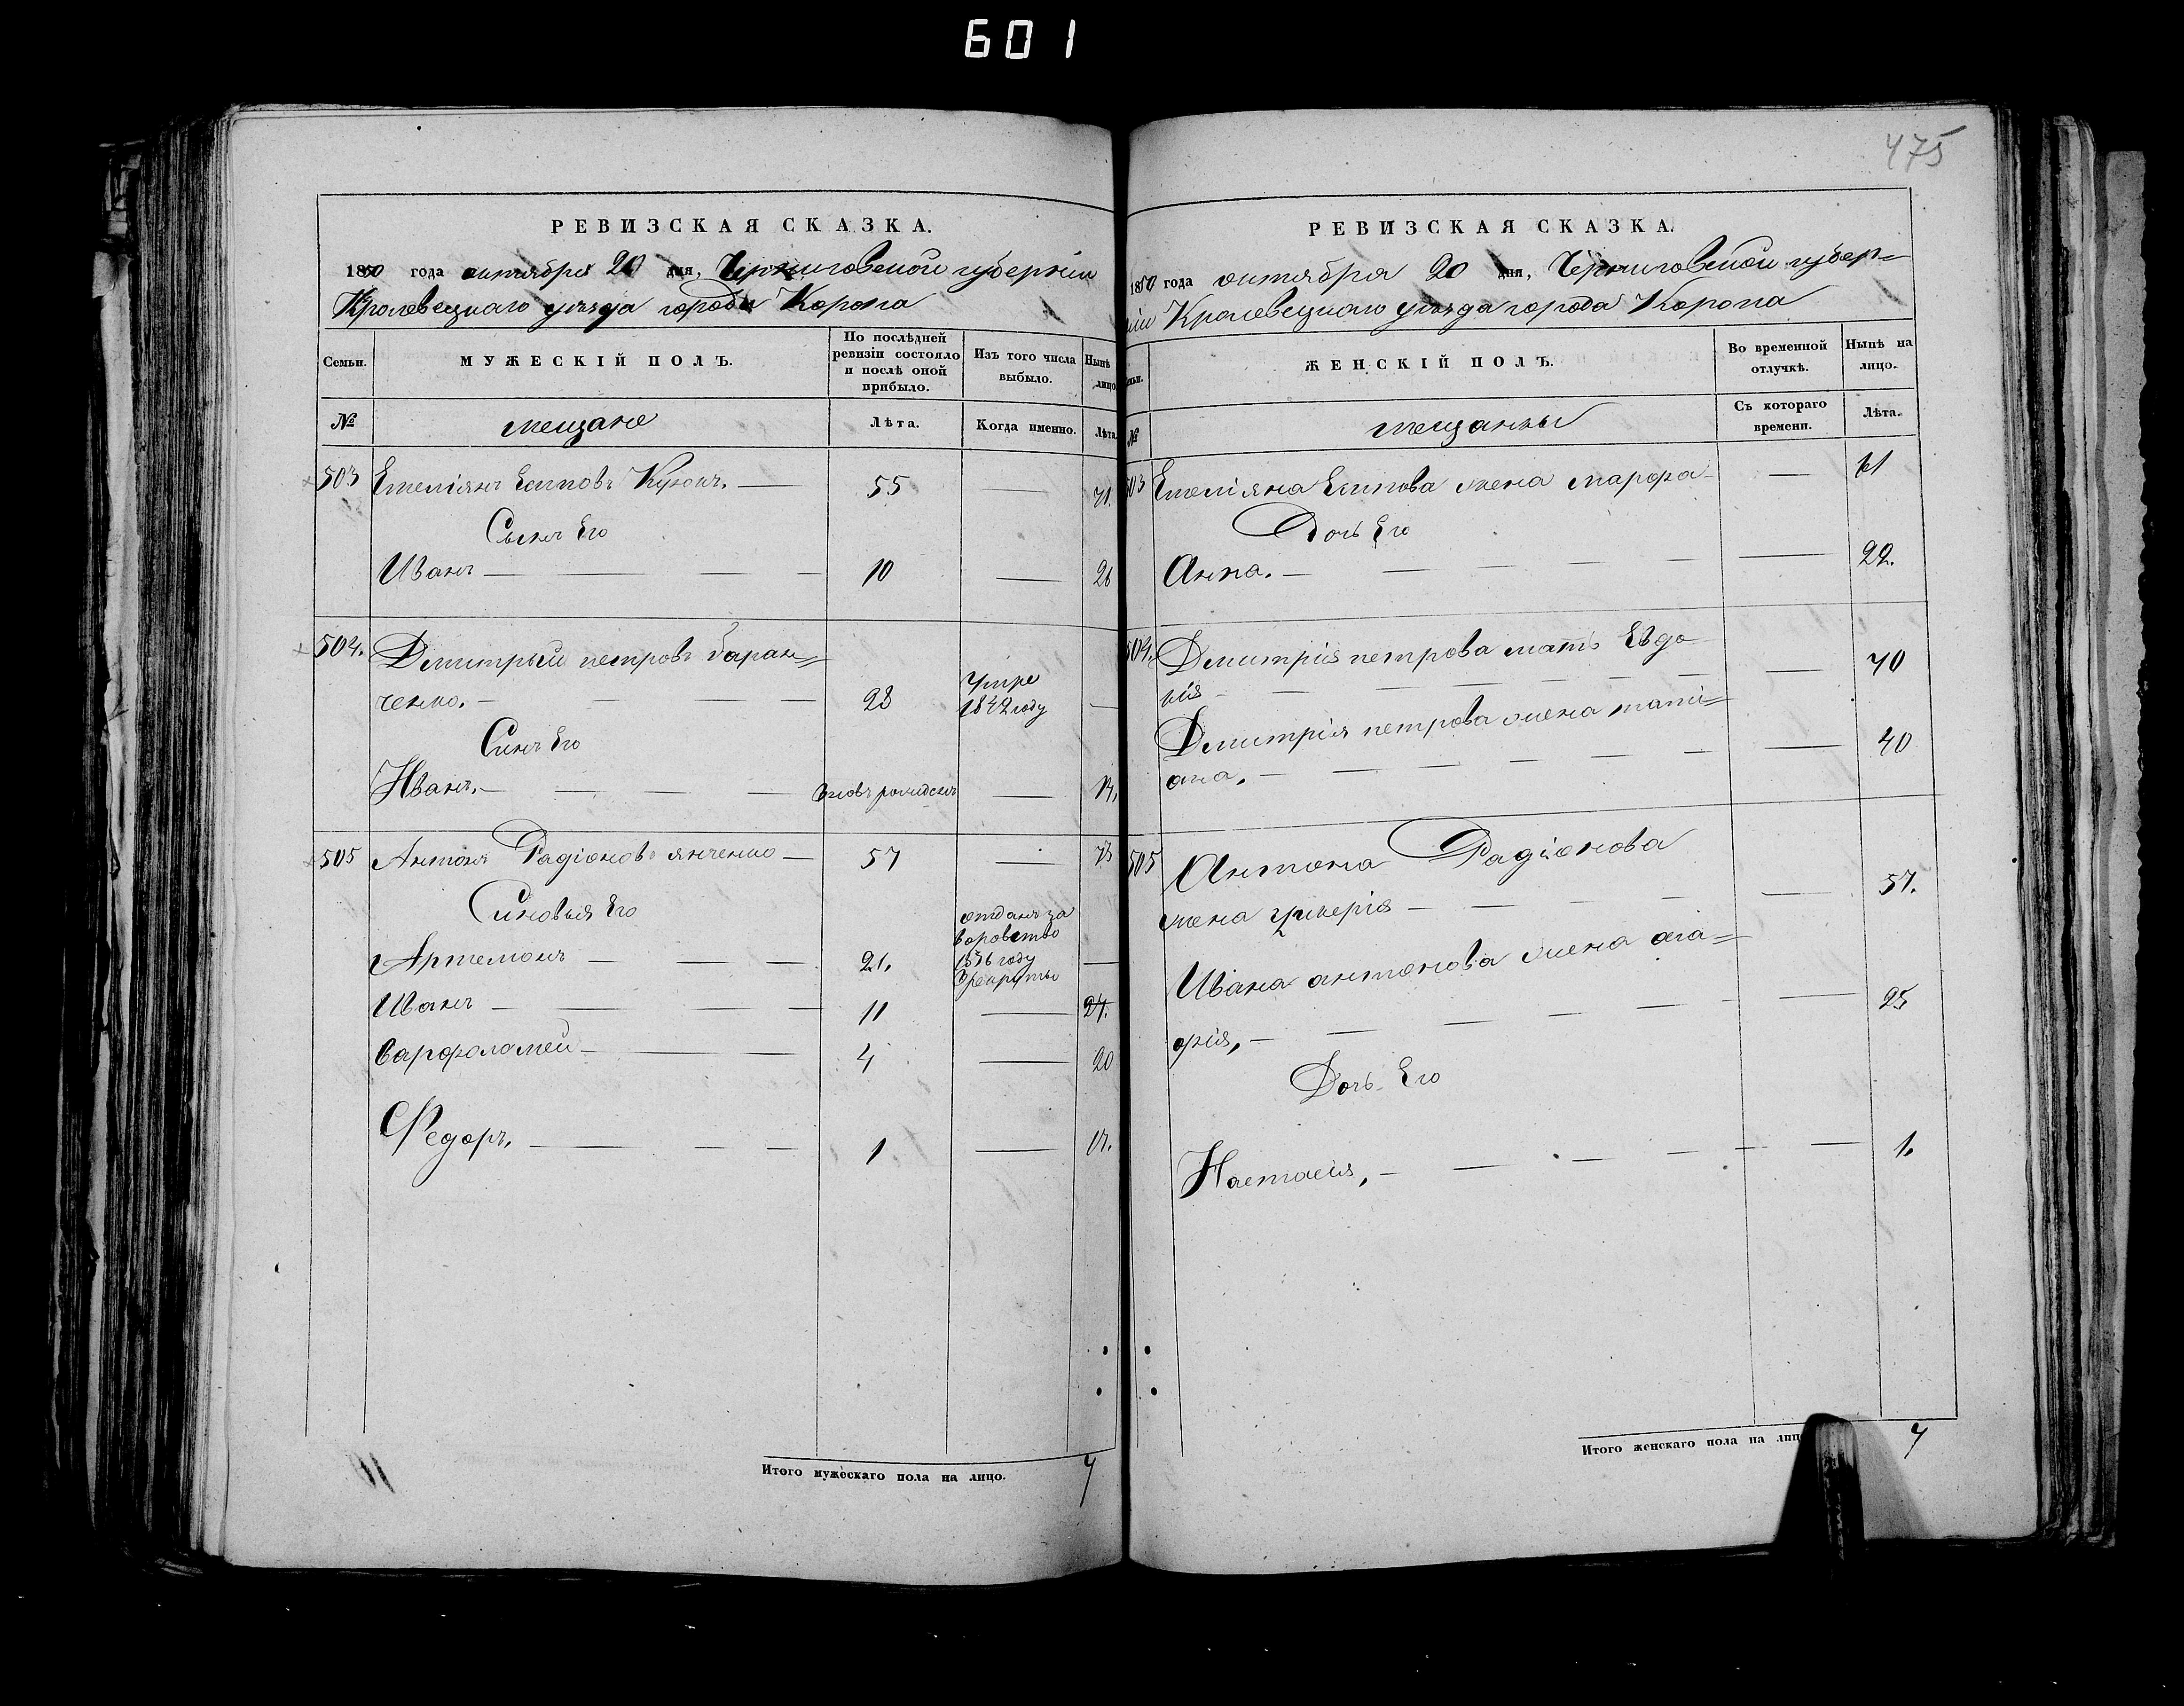 601
475
РЕВИЗСКАЯ СКАЗКА.
1850 года октября 20 дня, Черниговской губернiи
Кролевецкаго уѣзда города Коропа
Семьи.
МУЖЕСКІЙ ПОЛЪ.
По послѣдней ревизіи состояло и послѣ оной прибыло.
Изъ того числа выбыло.
Нынѣ лицо
№
мещане
Лѣта.
Когда именно.
Лѣта
503 Емелiянъ Есиповъ 55 — 71.
Сынъ Его
Иванъ — 10 — 26
504. Дмитрый петровъ баран=
ченко. — 28 Умре 1842 году —
Синъ Его
Иванъ. — вновь рожденъ —
505 Антонъ Радiоновъ янченко — 57 — 73
Синовья Его
Артемонъ — 21. отданъ за воровство 1836 году в рекруты —
Иванъ — 11 — 27.
варфоломей — 4 — 20
Федоръ, — 1 — 17.
Итого мужескаго пола на лицо. 7
РЕВИЗСКАЯ СКАЗКА.
1850 года октября 20 дня, Черниговской губер=
нiи Кролевецкаго уѣзда города Коропа
мьи.
ЖЕНСКІЙ ПОЛЪ.
Во временной отлучкѣ.
Нынѣ на лицо.
№
мещанки
Съ котораго времени.
Лѣта.
503 Емелiяна Есипова жена марфа — 61
Дочь Его
Анна. — 22.
504. Дмитрiя петрова мать Евдо
кiя — 70
Дмитрiя петрова жена татi=
ана. — 40
505 Антона Радiонова
жена гликерiя — 57.
Ивана антонова жена ага=
фiя, — 25
Дочь Его
Настасiя, — 1.
Итого женскаго пола на лиц 7